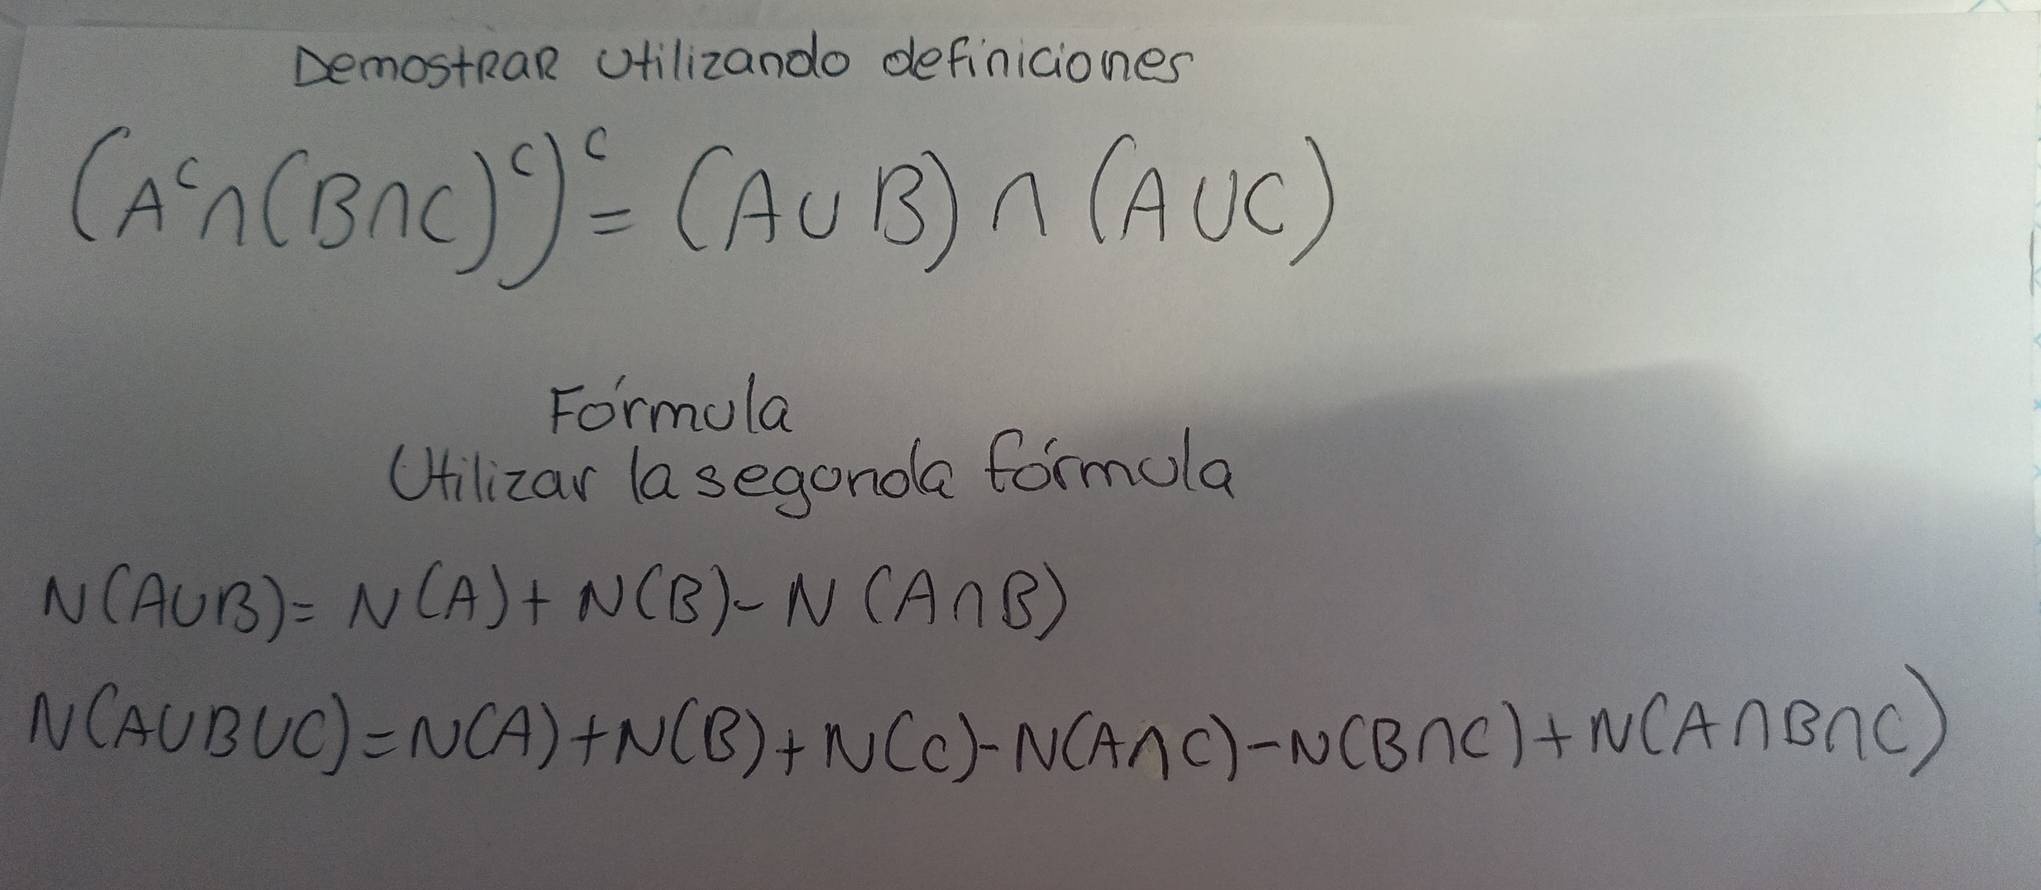 DemostRaR Utilizando definiciones
(Aᶜ∩(B∩C)ᶜ)ᶜ = (A∪B) ∩ (A∪C)
Fórmula
Utilizar la segunda fórmula
N(A∪B)= N(A)+ N(B)- N(A∩B)
N(A∪B∪C)=N(A)+N(B)+N(C)-N(A∩C)-N(B∩C)+N(A∩B∩C)